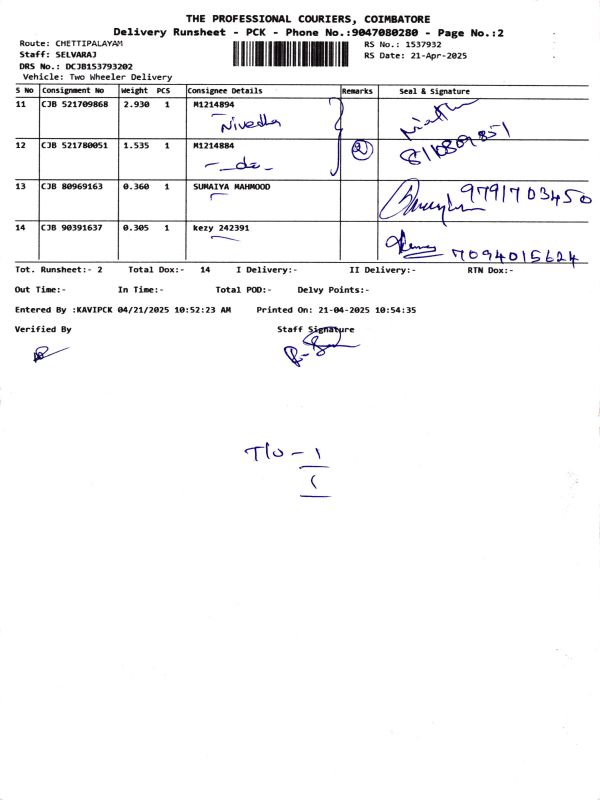 THE PROFESSIONAL COURIERS, COIMBATORE
Delivery Runsheet - PCK - Phone No.:9047080280 - Page No.:2
Route: CHETTIPALAYAM
Staff: SELVARAJ
DRS No.: DCJB153793202
Vehicle: Two Wheeler Delivery
RS No.: 1537932
RS Date: 21-Apr-2025
S No Consignment No Weight PCS Consignee Details Remarks Seal & Signature
11 CJB 521709868 2.930 1 M1214894
Nivedha
12 CJB 521780051 1.535 1 M1214884 2
- do -
13 CJB 80969163 0.360 1 SUMAIYA MAHMOOD 9791703450
14 CJB 90391637 0.305 1 kezy 242391
7094015624
Tot. Runsheet:- 2 Total Dox:- 14 I Delivery:- II Delivery:- RTN Dox:-
Out Time:- In Time:- Total POD:- Delvy Points:-
Entered By :KAVIPCK 04/21/2025 10:52:23 AM Printed On: 21-04-2025 10:54:35
Verified By Staff Signature
T/o - 1
1